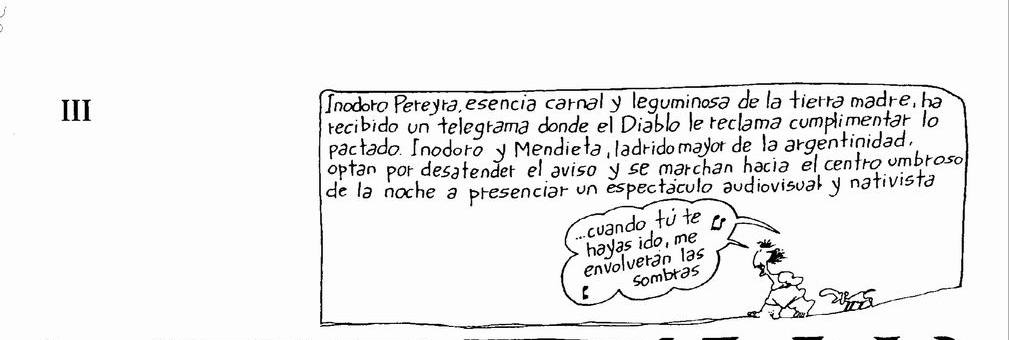 III
Inodoro Pereyra, esencia carnal y leguminosa de la tierra madre, ha
recibido un telegrama donde el Diablo le reclama cumplimentar lo
pactado. Inodoro y Mendieta, ladrido mayor de la argentinidad,
optan por desatender el aviso y se marchan hacia el centro umbroso
de la noche a presenciar un espectáculo audiovisual y nativista
...cuando tú te
hayas ido, me
envolverán las
sombras